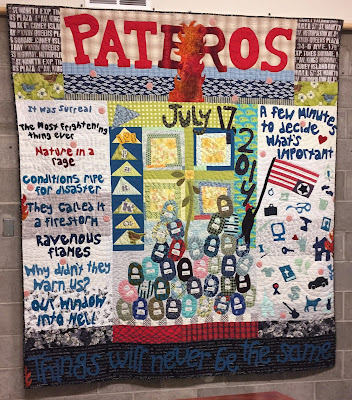 PATEROS
JULY 17
2014
It was surreal
The Most frightening
thing ever
Nature in a
rage
Conditions ripe
for disaster
They called it
a firestorm
Ravenous
flames
Why didn't they
warn us?
Our window
into Hell
A few Minutes
to decide
what's
important
Things will never be the same